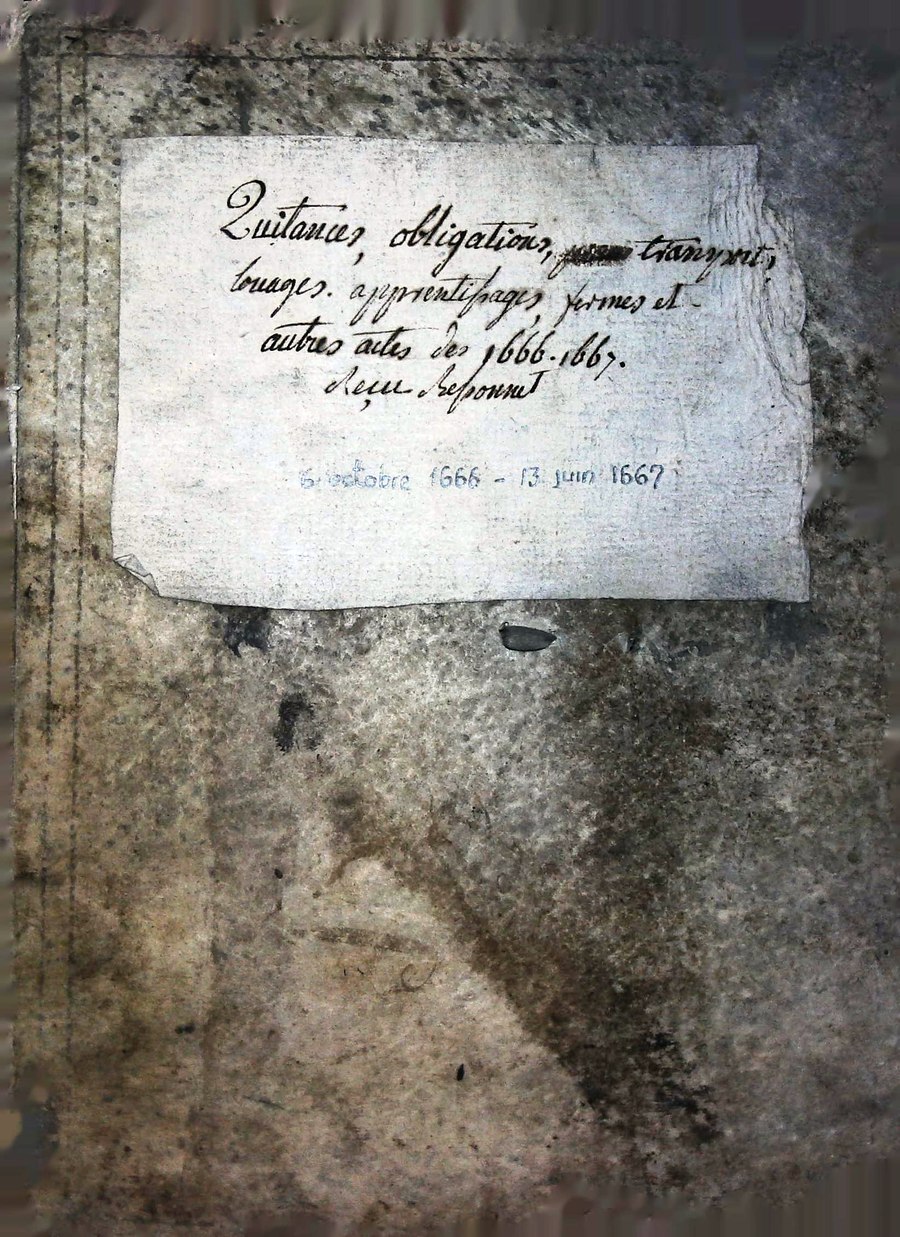 Quitances, obligations, transport,
louages. apprentissages, fermes et
autres actes des 1666. 1667.
Reçue
6 octobre 1666 - 13 juin 1667